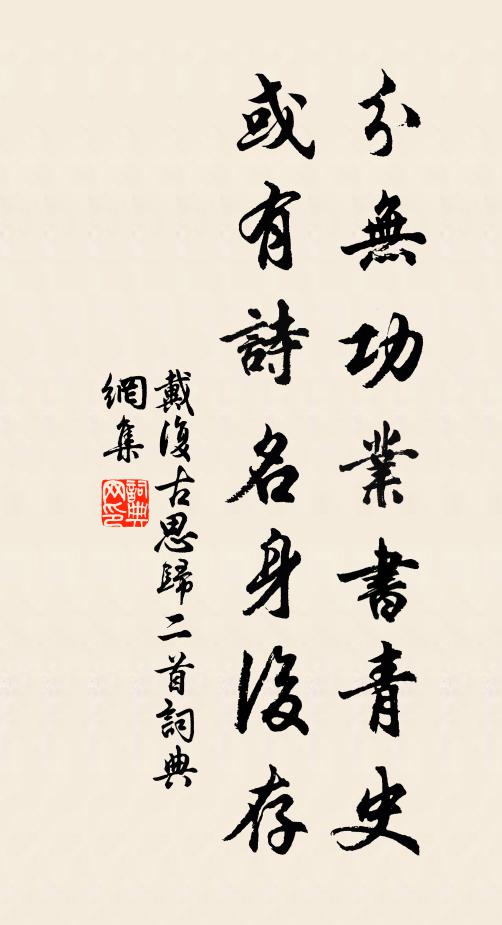 分無功業書青史
或有詩名身後存
戴復古思歸二首詞典
網集
詞典
網印